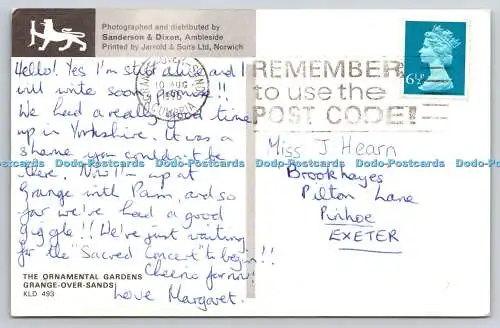 Photographed and distributed by
Sanderson & Dixon, Ambleside
Printed by Jarrold & Sons Ltd, Norwich
Hello! Yes I'm still alive and I
will write soon, promise!!
We had a really good time
up in Yorkshire. It was a
shame you couldn't be
there. Now I'm up at
Grange with Pam, and so
far we've had a good
giggle!! We're just waiting
for the "Sacred Concert" to begin!!
Cheerio for now!
Love Margaret.
THE ORNAMENTAL GARDENS
GRANGE-OVER-SANDS
KLD 493
GRANGE-OVER-SANDS
10 AUG
1976
CUMBRIA
REMEMBER
to use the
POST CODE!
6½P
Miss J Hearn
Brookhayes
Pilton Lane
Pinhoe
EXETER
Dodo-Postcards Dodo-Postcards Dodo-Postcards Dodo-Postcards Dodo-Postcards Dodo-Postcards